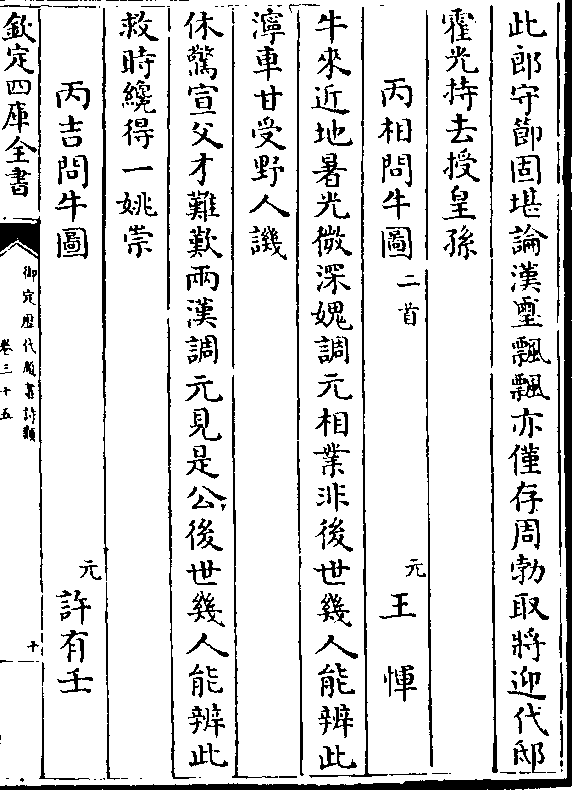 此郎守節固堪論漢璽飄飄亦僅存周勃取將迎代邸
霍光持去授皇孫
丙相問牛圖 二首 元 王惲
牛來近地暑光微深媿調元相業非後世幾人能辨此
濘車甘受野人譏
休驚宣父才難歎兩漢調元見是公後世幾人能辨此
救時纔得一姚崇
丙吉問牛圖 元 許有壬
欽定四庫全書
御定歷代題畫詩類
卷三十五
十